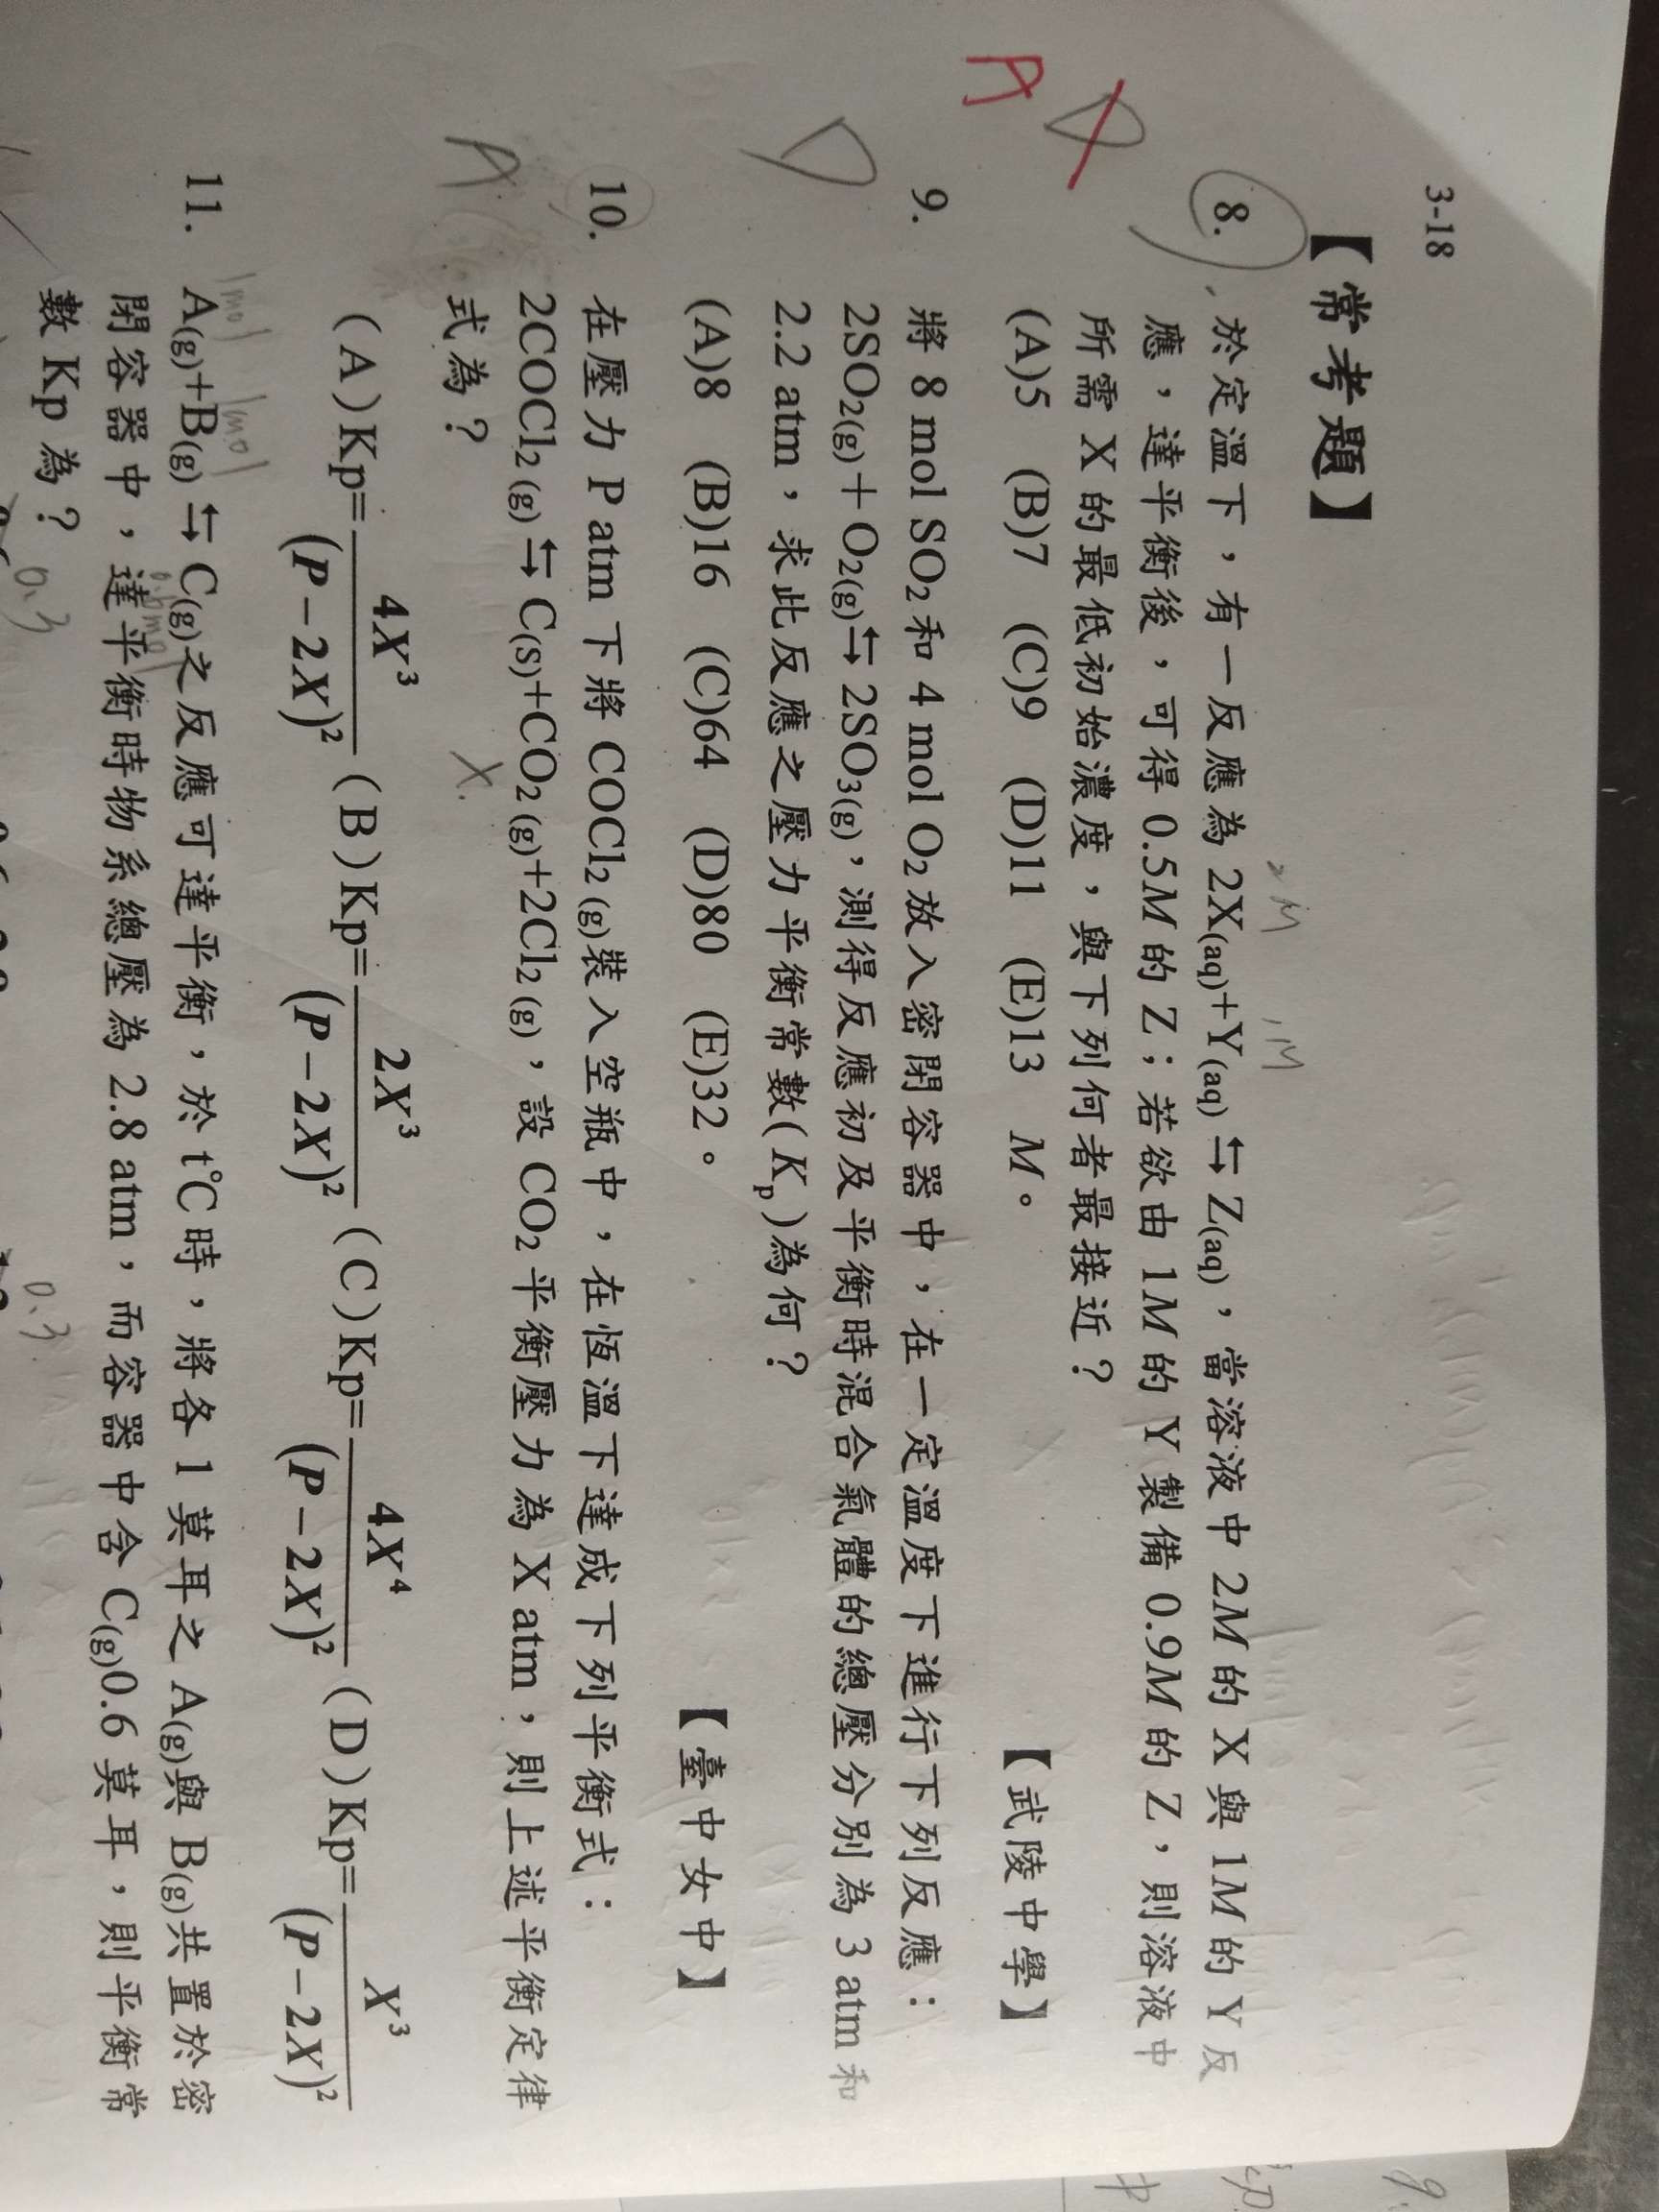 3-18
【常考題】
8. 於定溫下，有一反應為 2X(aq)+Y(aq)⇆Z(aq)，當溶液中 2M 的 X 與 1M 的 Y 反
應，達平衡後，可得 0.5M 的 Z；若欲由 1M 的 Y 製備 0.9M 的 Z，則溶液中
所需 X 的最低初始濃度，與下列何者最接近？
(A)5 (B)7 (C)9 (D)11 (E)13 M。 【武陵中學】
2M 1M
A
9. 將 8 mol SO₂ 和 4 mol O₂ 放入密閉容器中，在一定溫度下進行下列反應：
2SO₂(g)＋O₂(g)⇆2SO₃(g)，測得反應初及平衡時混合氣體的總壓分別為 3 atm 和
2.2 atm，求此反應之壓力平衡常數(Kp)為何？
(A)8 (B)16 (C)64 (D)80 (E)32。 【臺中女中】
D
10. 在壓力 P atm 下將 COCl₂(g)裝入空瓶中，在恆溫下達成下列平衡式：
2COCl₂(g)⇆C(s)+CO₂(g)+2Cl₂(g)，設 CO₂ 平衡壓力為 X atm，則上述平衡定律
式為？
A
X
(A)Kp=4X³/(P−2X)² (B)Kp=2X³/(P−2X)² (C)Kp=4X⁴/(P−2X)² (D)Kp=X³/(P−2X)²
11. A(g)+B(g)⇆C(g)之反應可達平衡，於 t℃時，將各 1 莫耳之 A(g)與 B(g)共置於密
閉容器中，達平衡時物系總壓為 2.8 atm，而容器中含 C(g)0.6 莫耳，則平衡常
數 Kp 為？
1mol 1mol
0.3
0.3